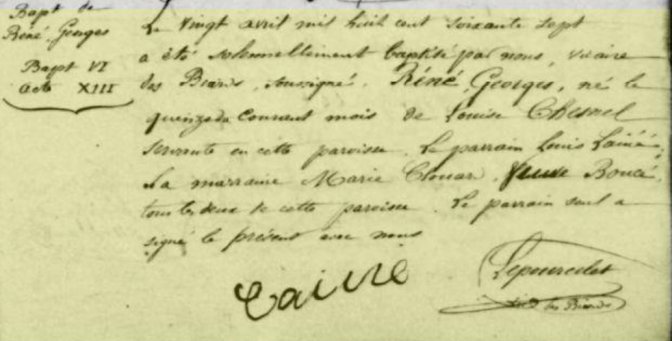 Bapt de
Réné Georges
Bapt VI
acte XIII
Le vingt avril mil huit cent soixante sept
a été solennellement baptisé par nous, vicaire
des Biards, soussigné, Réné Georges, né le
quinze du courant mois de Louise Chesnel
servante en cette paroisse. Le parrain Louis Lainé
La marraine Marie Clouar, veuve Boucé,
tous les deux de cette paroisse. Le parrain seul a
signé le présent avec nous
Lainé
des Biards